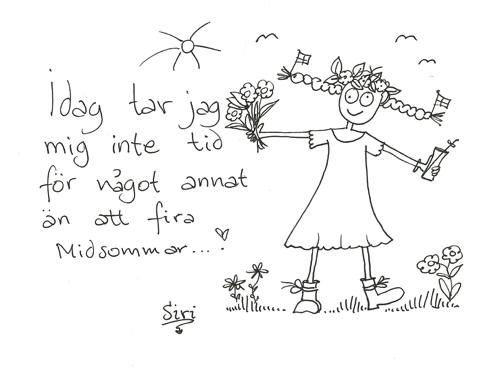 Idag tar jag
mig inte tid
för något annat
än att fira
Midsommar...!
Siri